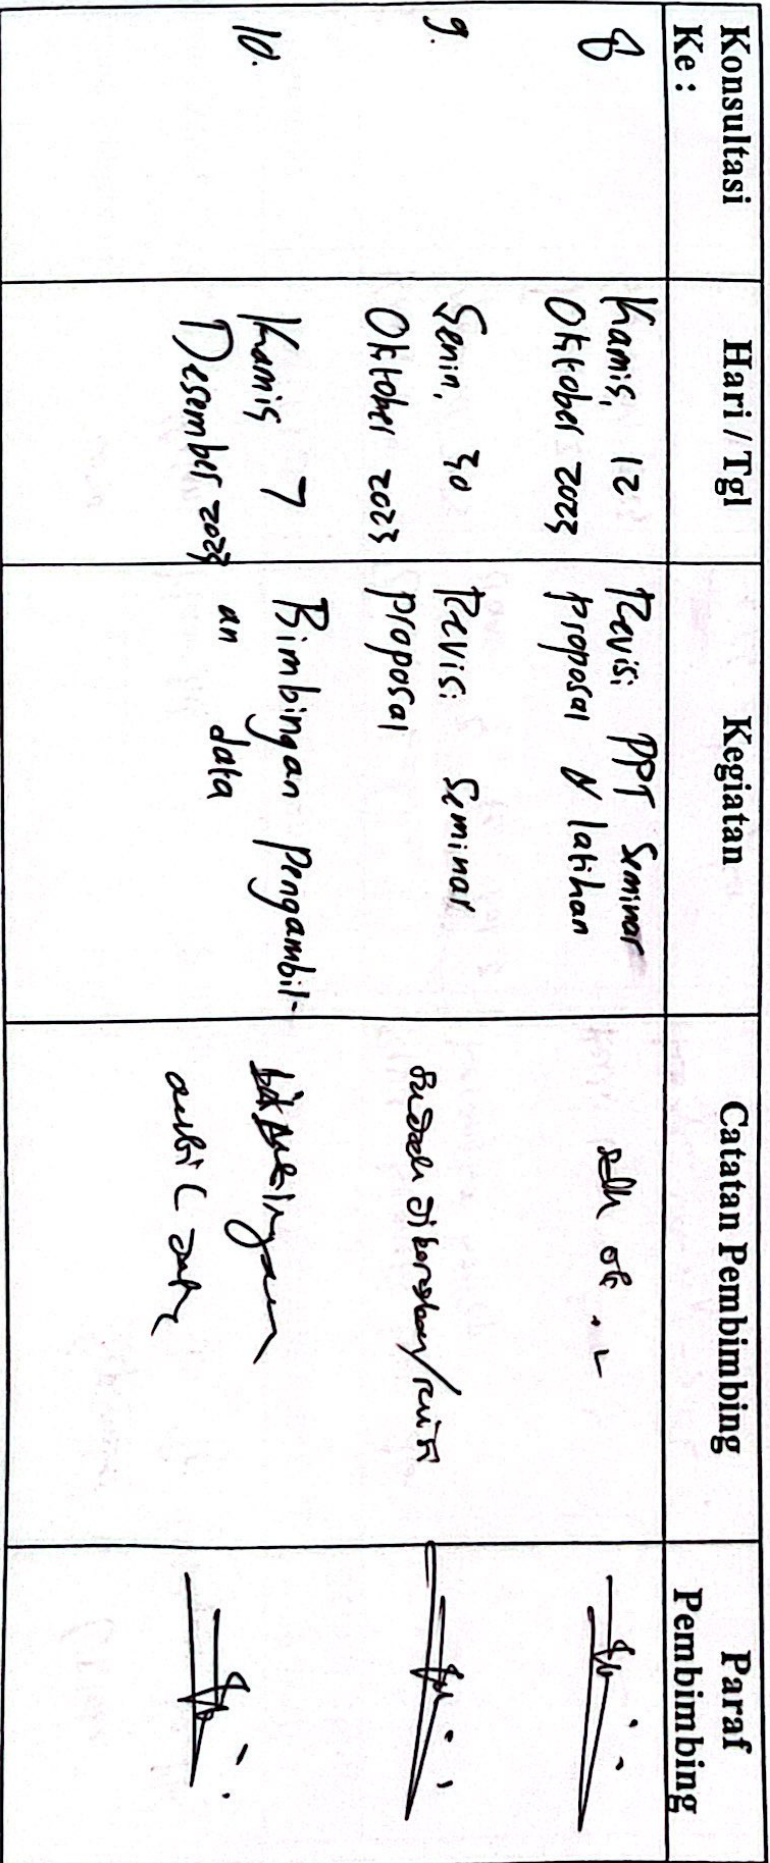 Konsultasi
Ke :
Hari / Tgl
Kegiatan
Catatan Pembimbing
Paraf
Pembimbing
8
Kamis, 12
Oktober 2023
Revisi PPT Seminar
proposal & latihan
ok
9.
Senin, 30
Oktober 2023
Revisi Seminar
proposal
sudah /revisi
10.
Kamis 7
Desember 2023
Bimbingan Pengambil-
an data